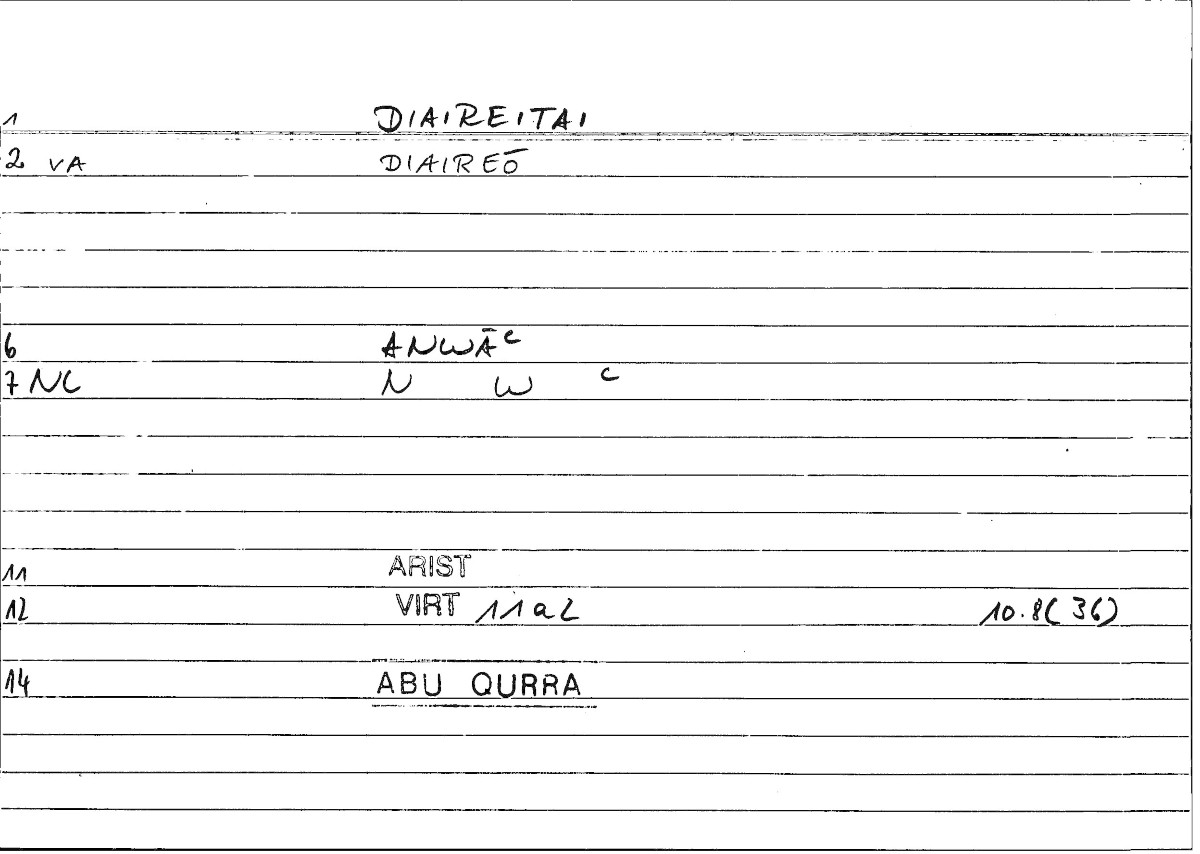 1 DIAIREITAI
2 VA DIAIREŌ
6 ANWĀᶜ
7 NC N W ᶜ
11 ARIST
12 VIRT 11a2 10.8(36)
14 ABU QURRA